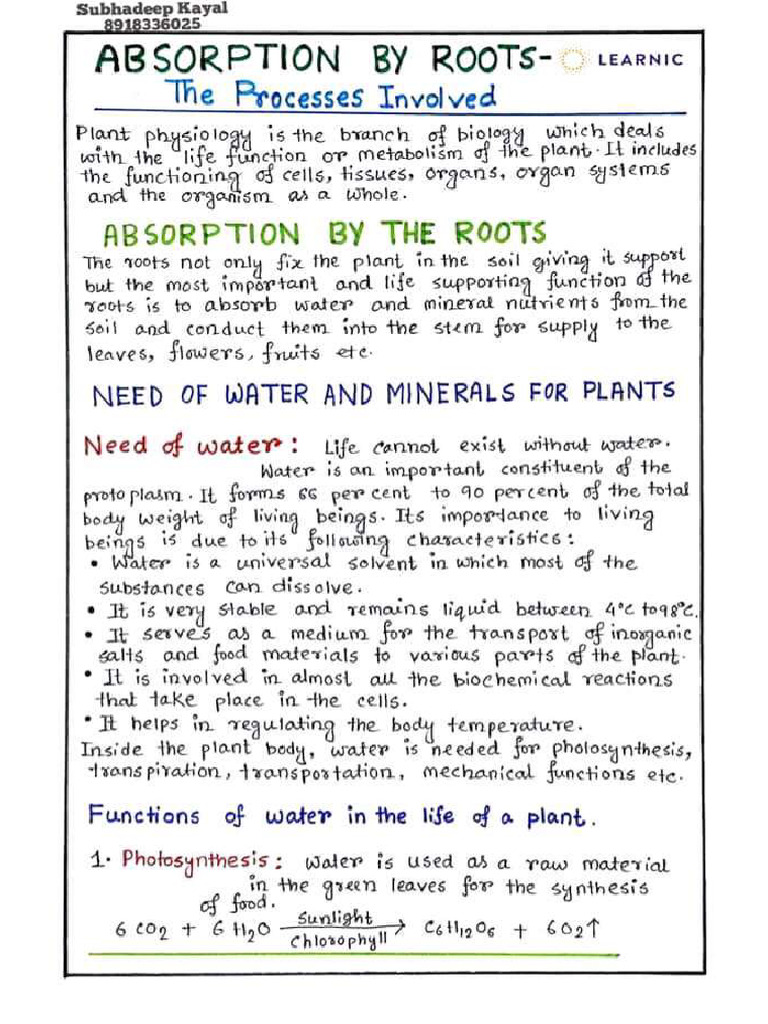 Subhadeep Kayal
8918336025
ABSORPTION BY ROOTS- LEARNIC
The Processes Involved
Plant physiology is the branch of biology which deals
with the life function or metabolism of the plant. It includes
the functioning of cells, tissues, organs, organ systems
and the organism as a whole.
ABSORPTION BY THE ROOTS
The roots not only fix the plant in the soil giving it support
but the most important and life supporting function of the
roots is to absorb water and mineral nutrients from the
soil and conduct them into the stem for supply to the
leaves, flowers, fruits etc.
NEED OF WATER AND MINERALS FOR PLANTS
Need of water: Life cannot exist without water.
Water is an important constituent of the
protoplasm. It forms 66 per cent to 90 percent of the total
body weight of living beings. Its importance to living
beings is due to its following characteristics:
• Water is a universal solvent in which most of the
substances can dissolve.
• It is very stable and remains liquid between 4°C to 98°C.
• It serves as a medium for the transport of inorganic
salts and food materials to various parts of the plant.
• It is involved in almost all the biochemical reactions
that take place in the cells.
• It helps in regulating the body temperature.
Inside the plant body, water is needed for photosynthesis,
transpiration, transportation, mechanical functions etc.
Functions of water in the life of a plant.
1. Photosynthesis: Water is used as a raw material
in the green leaves for the synthesis
of food.
6 CO2 + 6 H2O Sunlight Chlorophyll → C6H12O6 + 6O2↑